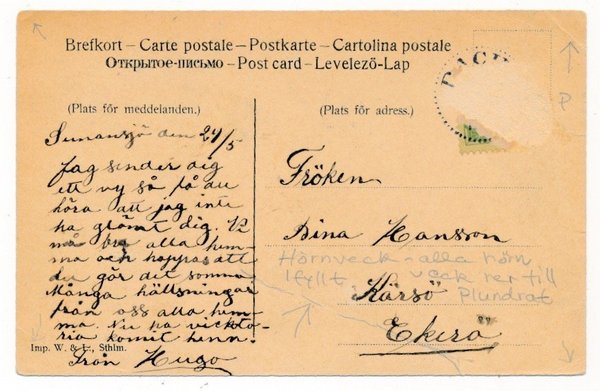 Brefkort – Carte postale – Postkarte – Cartolina postale
Открытое-письмо – Post card – Levelező-Lap
PACK
P
(Plats för meddelanden.)
(Plats för adress.)
Sunansjö den 24/5
Jag sender dig
ett vy så få du
höra att jag inte
ha glömt dig. Vi
må bra alla hem-
ma och hoppas att
du gör det somma
Många hälsningar
från oss alla hem-
ma. Nu ha vickto-
ria komit henn.
Från Hugo
Fröken
Bina Hansson
Hörnveck – alla hörn
Ifyllt veck rer till
Kärsö Plundrat
Ekerö
Imp. W. & L., Sthlm.